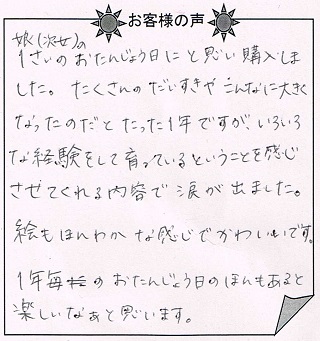 お客様の声
娘(次女)の
1さいのおたんじょう日にと思い購入しま
した。たくさんのだいすきやこんなに大きく
なったのだとたった1年ですが、いろいろ
な経験をして育っているということを感じ
させてくれる内容で涙が出ました。
絵もほんわかな感じでかわいいです。
1年毎のおたんじょう日のほんもあると
楽しいなぁと思います。